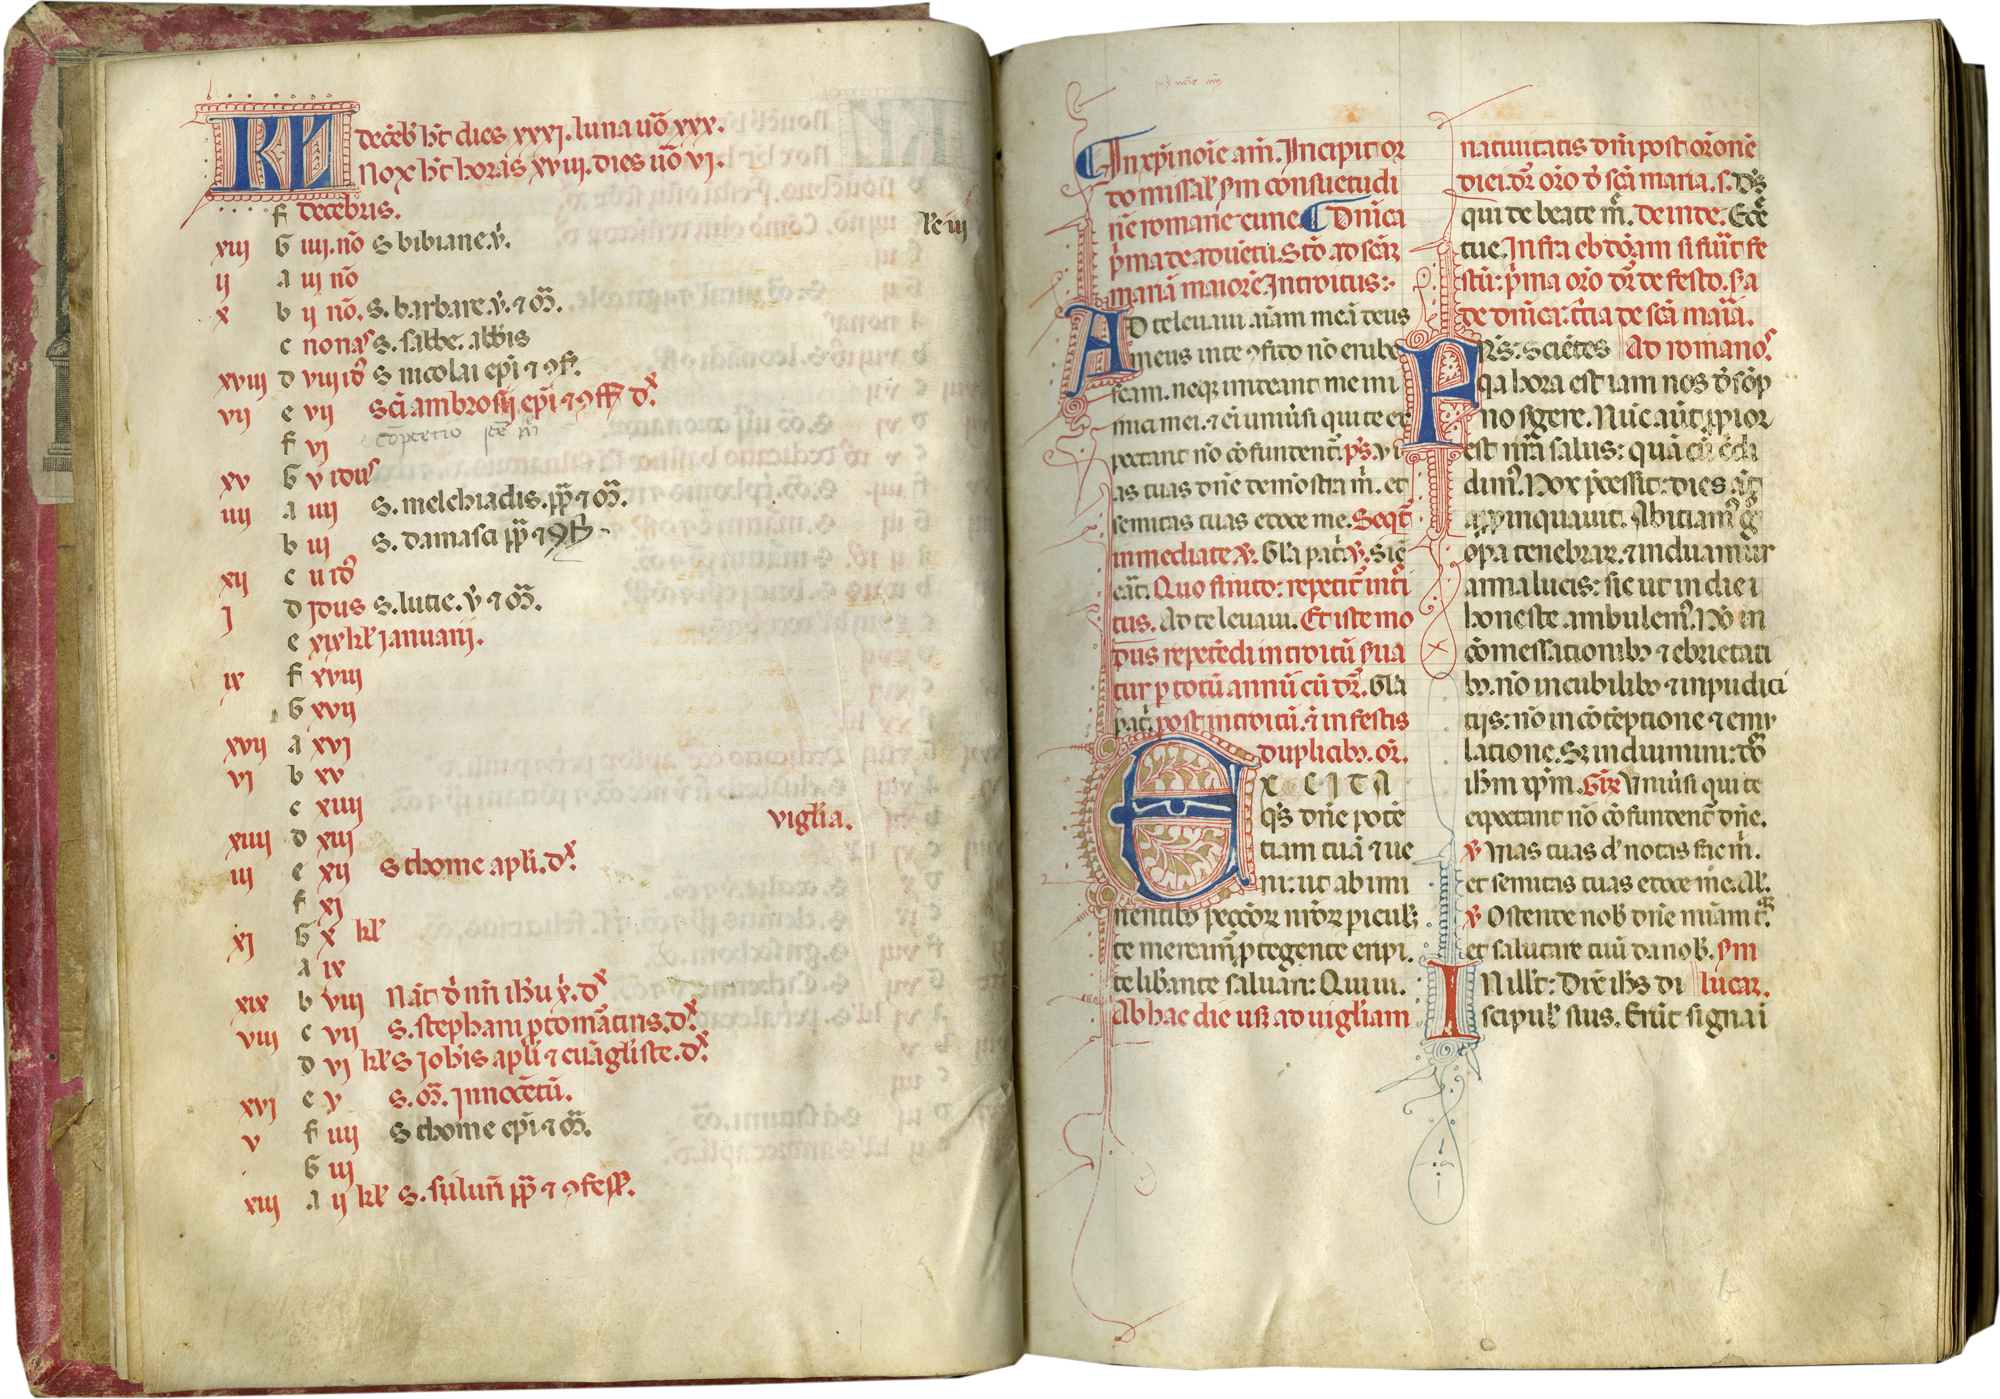 KL
decēb̄ ħt dies xxxi. luna uō xxx.
Nox ħt horas xviii. dies uō vi.
f decēbris.
xiii G iiii. nō s bibiane. v̄.
ii a iii nō
x b ii nō. s. barbare. v̄. ⁊ m̄.
c nonas s. sabbe. abbis
xviii d viii id9 s nicolai ep̄i ⁊ ꝯf.
vii e vii Sc̄i ambrosii ep̄i ⁊ ꝯff dx
f vi
xv G v idus
iiii a iiii s. melchiadis. pp̄ ⁊ m̄.
b iii s. damasci pp̄ ⁊
xii c ii id9
i d idus s. lucie. v̄ ⁊ m̄.
e xix kl' ianuarij.
ix f xviii
G xvii
xvii a xvi
vi b xv
c xiiii
viglia.
xiiii d xiii
iii e xii s thome apl'i. dx
f xi
xi G x kl'
a ix
xix b viii Nāt d̄ nr̄i ih̄u x̄. dx
viii c vii s. stephani ꝓtomār̄tiris. dx
d vi kl' s ioh̄is apl'i ⁊ euāgl'iste. dx
xvi e v s. m̄. innocētū.
v f iiii s thome ep̄i ⁊ m̄.
G iii
xiii a ii kl' s. siluest̄ri pp̄ ⁊ ꝯfess.
In xp̄i noīe am̄. Incipit or
do missal' s̄m consuetudi
nē romane curie. Dn̄ica
p̄ma de aduētu. Stō ad scām
mariā maiorē. Introitus:
Ad te leuaui aīam meā deus
meus in te ꝯfido nō erube
scam. neqꝫ irrideant me ini
mici mei. ⁊ eī uniu̇si qui te ex
pectant nō cōfundent̄. ps̄. vi
as tuas dn̄e demōstra m̄. et
semitas tuas edoce me. Seqt̄
inmediate v̄. Gl'a pat̄. v̄. Sic̄
erāt. Quo finito: repetit̄ int̄i
tus. Ad te leuaui. Et iste mo
dus repetēdi introitū s̄ua
tur ꝑ totū annū cū dr̄. Gl'a
pat̄. post introitū. ⁊ in festis
duplicibꝫ. or̄.
EXCITA
qs̄ dn̄e potē
tiam tuā ⁊ ue
ni: ut ab imi
nentibꝫ pecc̄oꝝ nr̄oꝝ piculis
te meream̄ ꝓtegente eripi.
te lib̄ante saluari: Qui ui.
Ab hac die usqꝫ ad uigl'iam
natiuitatis dn̄i post or̄onē
diei. dr̄ or̄o d̄ scā maria. s. ds̄
qui de beate m̄. deinde. Ecc̄e
tue. Infra ebdōam si fiūt fe
stū: p̄ma or̄o dr̄ de festo. s̄a
de dn̄ica: t̄cia de scā maīa.
Frs̄: Sciētes Ad romanos.
qa hora est iam nos d̄ sōp
no s̄gere. Nūc aūt ꝓpior
est nr̄a salus: quā cū c̄di
dim9. Nox p̄cessit: dies aūt
appinquauit. Abiciam9 g̊
oꝑa tenebraꝝ. ⁊ induamur
arma lucis: sic ut in die i
honeste ambulem9. Nō in
cōmessationibꝫ ⁊ ebrietati
bꝫ. nō in cubilibꝫ ⁊ inpudici
tijs: nō in cōtēptione ⁊ emu
latione. Sꝫ induimini: dn̄m
ih̄m xp̄m. Gr̄. Uniu̇si qui te
expectant nō cōfundent̄ dn̄e.
v̄ Vias tuas dn̄e notas fac m̄.
et semitas tuas edoce me. Al'.
v̄ Ostende nob̄ dn̄e mīam t̄.
et salutare tuū da nob̄. s̄m
In ill't: Dix̄ ih̄s di lucaꝝ.
scipul' suis. Erūt signa i